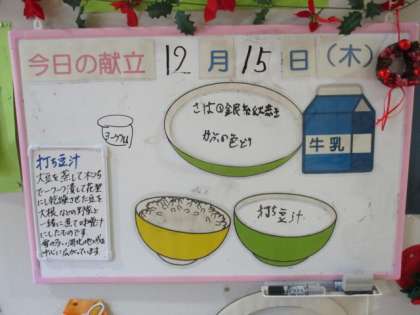 今日の献立 12月15日(木)
さばの銀紙焼き
かぶの色どり
ヨーグルト
牛乳
打ち豆汁
打ち豆汁
大豆を蒸して木づち
で一つ一つ潰して花型
にし乾燥させた豆を
大根などの野菜と
一緒に煮て味噌汁
にしたものです。